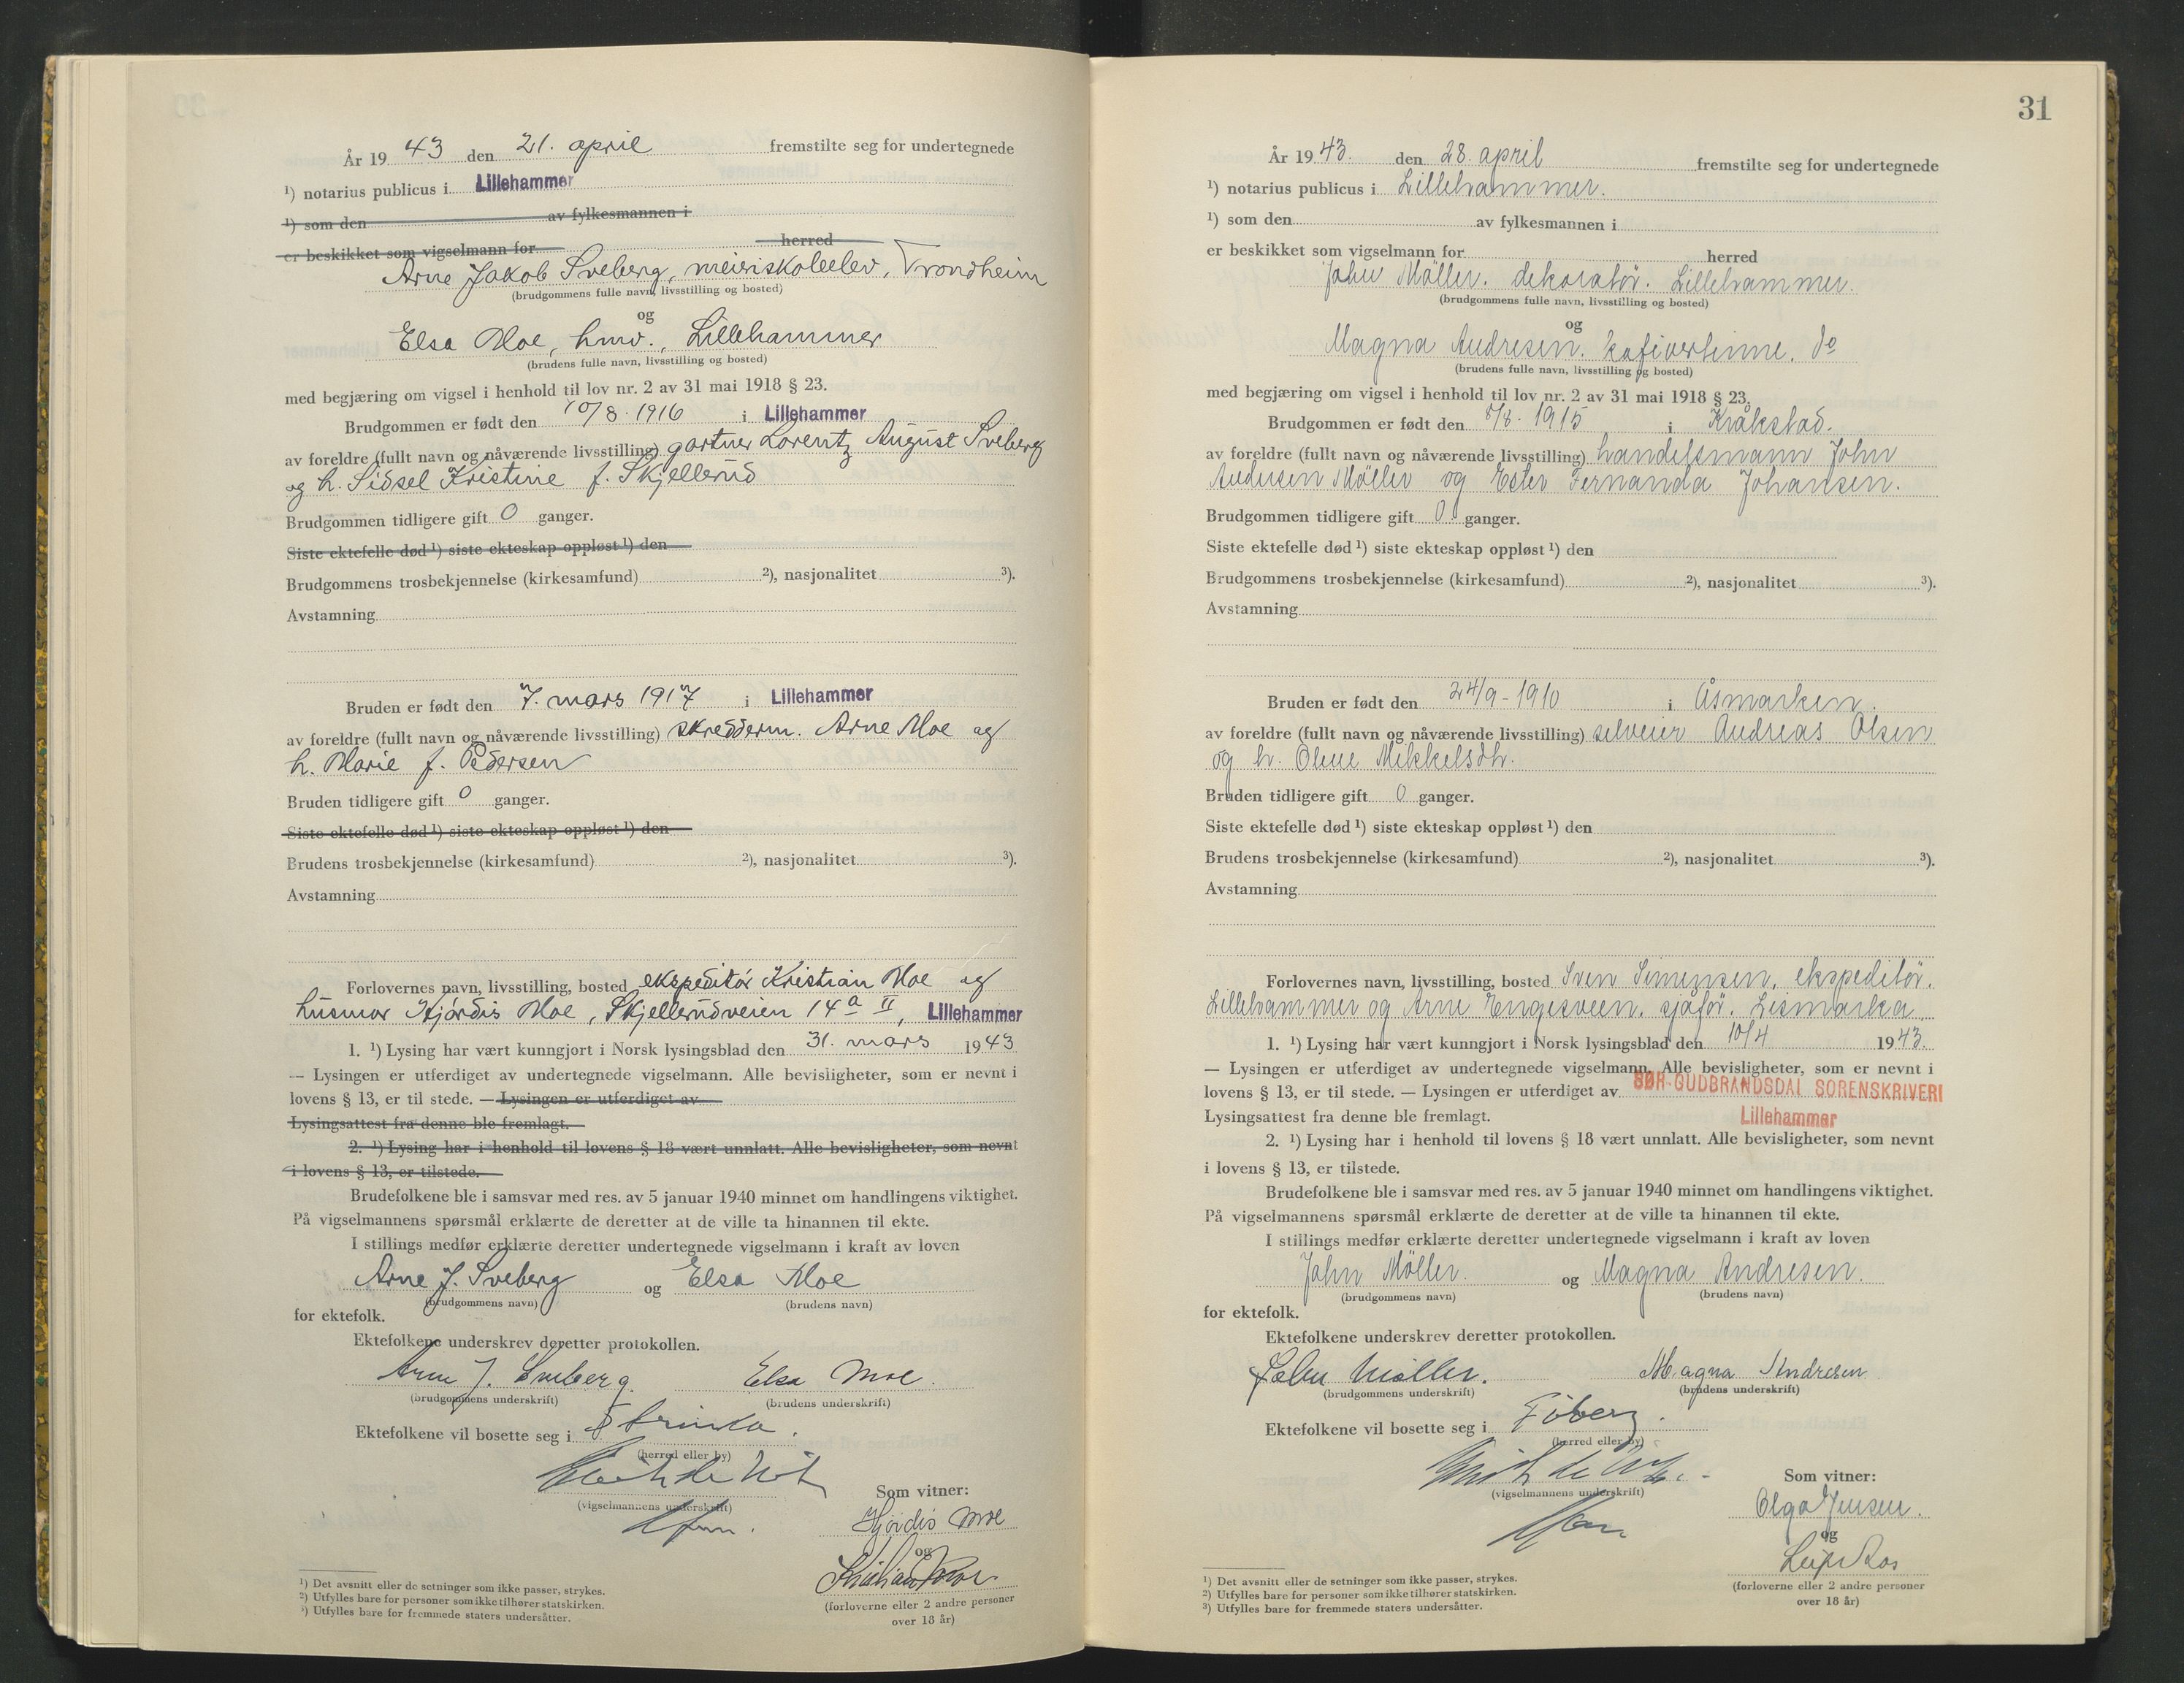 År 19 43 den 21. april fremstilte seg for undertegnede
¹) notarius publicus i Lillehammer
¹) som den av fylkesmannen i
er beskikket som vigselmann for herred
Arne Jakob Sveberg, meieriskoleelev, Trondheim
(brudgommens fulle navn, livsstilling og bosted)
og
Elsa Moe, hmv., Lillehammer
(brudens fulle navn, livsstilling og bosted)
med begjæring om vigsel i henhold til lov nr. 2 av 31 mai 1918 § 23.
Brudgommen er født den 10/8. 1916 i Lillehammer
av foreldre (fullt navn og nåværende livsstilling) gartner Lorentz August Sveberg
og h. Sidsel Kristine f. Skjellerud
Brudgommen tidligere gift 0 ganger.
Siste ektefelle død ¹) siste ekteskap oppløst ¹) den
Brudgommens trosbekjennelse (kirkesamfund) ²), nasjonalitet ³).
Avstamning
Bruden er født den 7. mars 1917 i Lillehammer
av foreldre (fullt navn og nåværende livsstilling) skredderm. Arne Moe og
h. Marie f. Pedersen
Bruden tidligere gift 0 ganger.
Siste ektefelle død ¹) siste ekteskap oppløst ¹) den
Brudens trosbekjennelse (kirkesamfund) ²), nasjonalitet ³).
Avstamning
Forlovernes navn, livsstilling, bosted ekspeditör Kristian Moe og
husmor Hjördis Moe, Skjellerudveien 14a II, Lillehammer
1. ¹) Lysing har vært kunngjort i Norsk lysingsblad den 31. mars 19 43
— Lysingen er utferdiget av undertegnede vigselmann. Alle bevisligheter, som er nevnt i
lovens § 13, er til stede. — Lysingen er utferdiget av
Lysingsattest fra denne ble fremlagt.
2. ¹) Lysing har i henhold til lovens § 18 vært unnlatt. Alle bevisligheter, som nevnt
i lovens § 13, er tilstede.
Brudefolkene ble i samsvar med res. av 5 januar 1940 minnet om handlingens viktighet.
På vigselmannens spørsmål erklærte de deretter at de ville ta hinannen til ekte.
I stillings medfør erklærte deretter undertegnede vigselmann i kraft av loven
Arne J. Sveberg og Elsa Moe
(brudgommens navn) (brudens navn)
for ektefolk.
Ektefolkene underskrev deretter protokollen.
Arne J. Sveberg Elsa Moe.
(brudgommens underskrift) (brudens underskrift)
Ektefolkene vil bosette seg i Strinda.
(herred eller by)
(vigselmannens underskrift)
Som vitner:
Hjördis Moe
og
Kristian Moe
(forloverne eller 2 andre personer
over 18 år)
¹) Det avsnitt eller de setninger som ikke passer, strykes.
²) Utfylles bare for personer som ikke tilhører statskirken.
³) Utfylles bare for fremmede staters undersåtter.
31
År 19 43. den 28. april fremstilte seg for undertegnede
¹) notarius publicus i Lillehammer.
¹) som den av fylkesmannen i
er beskikket som vigselmann for herred
John Möller. dekoratör. Lillehammer.
(brudgommens fulle navn, livsstilling og bosted)
og
Magna Andresen. kafivertinne. do
(brudens fulle navn, livsstilling og bosted)
med begjæring om vigsel i henhold til lov nr. 2 av 31 mai 1918 § 23.
Brudgommen er født den 8/8. 1915 i Kråkstad.
av foreldre (fullt navn og nåværende livsstilling) handelsmann John
Andersen Möller og Ester Fernanda Johansen.
Brudgommen tidligere gift 0 ganger.
Siste ektefelle død ¹) siste ekteskap oppløst ¹) den
Brudgommens trosbekjennelse (kirkesamfund) ²), nasjonalitet ³).
Avstamning
Bruden er født den 24/9 - 1910 i Åsmarken.
av foreldre (fullt navn og nåværende livsstilling) selveier Andreas Olsen
og h. Oline Mikkelsdtr.
Bruden tidligere gift 0 ganger.
Siste ektefelle død ¹) siste ekteskap oppløst ¹) den
Brudens trosbekjennelse (kirkesamfund) ²), nasjonalitet ³).
Avstamning
Forlovernes navn, livsstilling, bosted Sven Simensen, ekspeditör.
Lillehammer og Arne Engesveen. sjåför. Lismarka.
1. ¹) Lysing har vært kunngjort i Norsk lysingsblad den 10/4 19 43.
— Lysingen er utferdiget av undertegnede vigselmann. Alle bevisligheter, som er nevnt i
lovens § 13, er til stede. — Lysingen er utferdiget av SØR-GUDBRANDSDAL SORENSKRIVERI
Lysingsattest fra denne ble fremlagt. Lillehammer
2. ¹) Lysing har i henhold til lovens § 18 vært unnlatt. Alle bevisligheter, som nevnt
i lovens § 13, er tilstede.
Brudefolkene ble i samsvar med res. av 5 januar 1940 minnet om handlingens viktighet.
På vigselmannens spørsmål erklærte de deretter at de ville ta hinannen til ekte.
I stillings medfør erklærte deretter undertegnede vigselmann i kraft av loven
John Möller. og Magna Andresen.
(brudgommens navn) (brudens navn)
for ektefolk.
Ektefolkene underskrev deretter protokollen.
John Möller. Magna Andresen
(brudgommens underskrift) (brudens underskrift)
Ektefolkene vil bosette seg i Fåberg.
(herred eller by)
(vigselmannens underskrift)
Som vitner:
Olga Jensen.
og
Leif Ros
(forloverne eller 2 andre personer
over 18 år)
¹) Det avsnitt eller de setninger som ikke passer, strykes.
²) Utfylles bare for personer som ikke tilhører statskirken.
³) Utfylles bare for fremmede staters undersåtter.